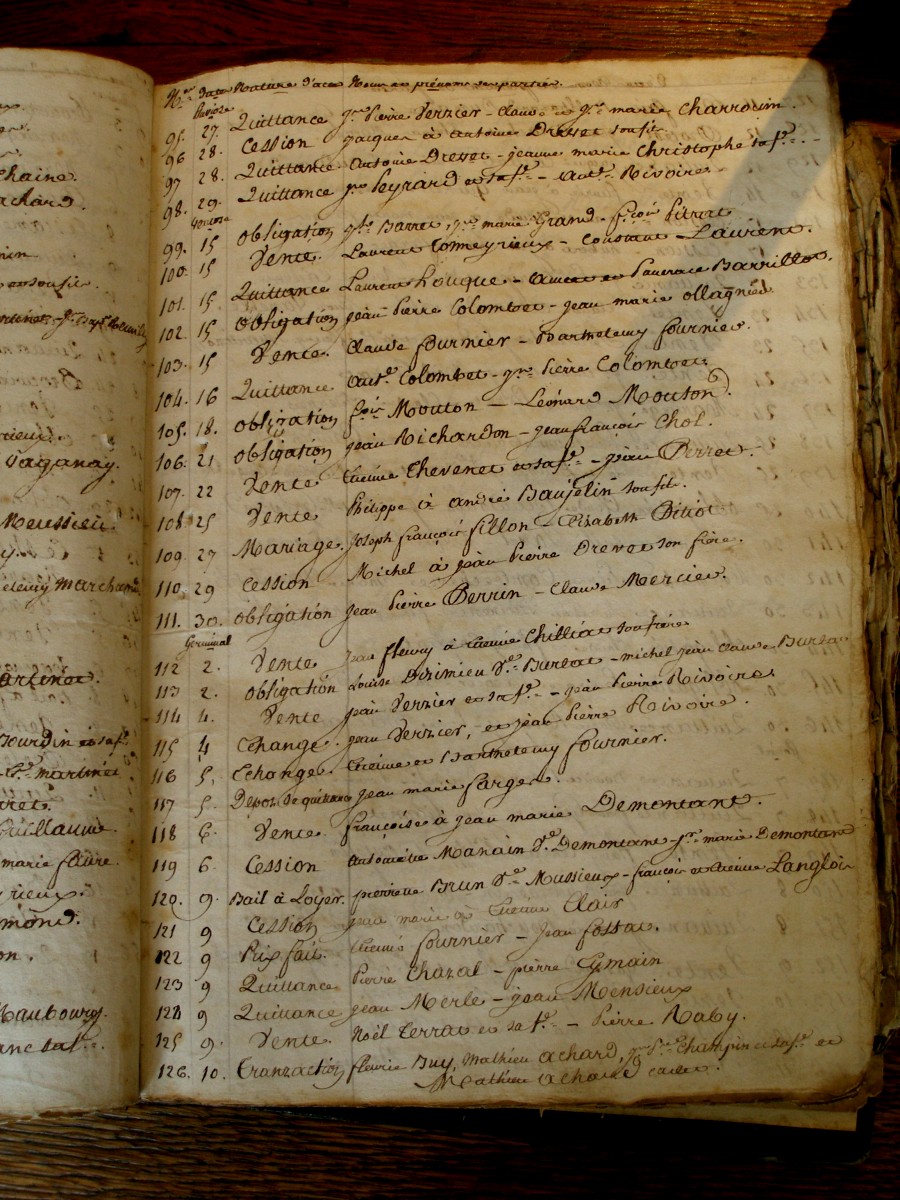 chaine.
achard.
Vaganay.
Meussieu
Martinet.
Jourdin et sa fe.
martinet
Guillaume
marie faure
Maubourg.
Nos. Date Nature d'acte Noms et prénoms des parties.
Pluviose
95. 27. Quittance Pierre Verrier - Claude et marie Charrouin.
96 28. Cession Jacques à Antoine Drevet son fils.
97 28. Quittance. Antoine Drevet - jeanne marie Christophe sa fe. -
98. 29. Quittance Peyrard et sa fe. - Ante. Rivoire.
Ventose
99. 15 Obligation Barret, marie Grand - fçois Pitrat
100. 15 Vente. Laurent Commeyrieux - Constant Laurent.
101. 15. Quittance Laurent Fouque - Barrillot.
102. 15 Obligation jean Pierre Colombet - jean marie Ollagnier.
103. 15 Vente. Claude fournier - Barthelemy fournier.
104. 16 Quittance Ante. Colombet - Pierre Colombet.
105. 18. Obligation fçois Mouton - Léonard Mouton.
106. 21 Obligation jean Richardon - jean françois Chol.
107. 22 Vente Etienne Thevenet et sa fe. - jean Perret.
108 25 Vente. Philippe à andré Baujelin son fils.
109. 27 Mariage. Joseph françois fillon - Elizabeth Pitiot
110. 29 Cession Michel à jean Pierre Drevet son frère.
111. 30. Obligation jean Pierre Perrin - Claude Mercier.
Germinal
112 2. Vente jean fleury à Etienne Chilliat son frère
113 2. Obligation Louise Dizimieu Ve. Burlat - michel jean Claude Burlat
114 4. Vente jean Verrier et sa fe. - jean Pierre Rivoire.
115 4 Echange. jean Verrier, et jean Pierre Rivoire.
116 5. Echange. Etienne et Barthelemy fournier.
117 5. Depot de quittance jean marie farge.
118 6. Vente. françoise à jean marie Demontant.
119 6. Cession Antoinette Manain Ve. Demontant - marie Demontant
120. 9. Bail à Loyer. pierrette Brun Ve. Mussieux - françois et Etienne Langlois
121 9 Cession jean marie à Etienne Clair
122 9 Prix fait. Etienne fournier - jean fossat.
123 9 Quittance Pierre Chazal - pierre Eymain
124 9 Quittance jean Merle - jean Mensieux
125 9. Vente Noël Terrat et sa fe. - Pierre Raby.
126. 10. Tranzaction fleurie Buy, Mathieu achard, Champin et sa fe. et
Mathieu achard cadet.